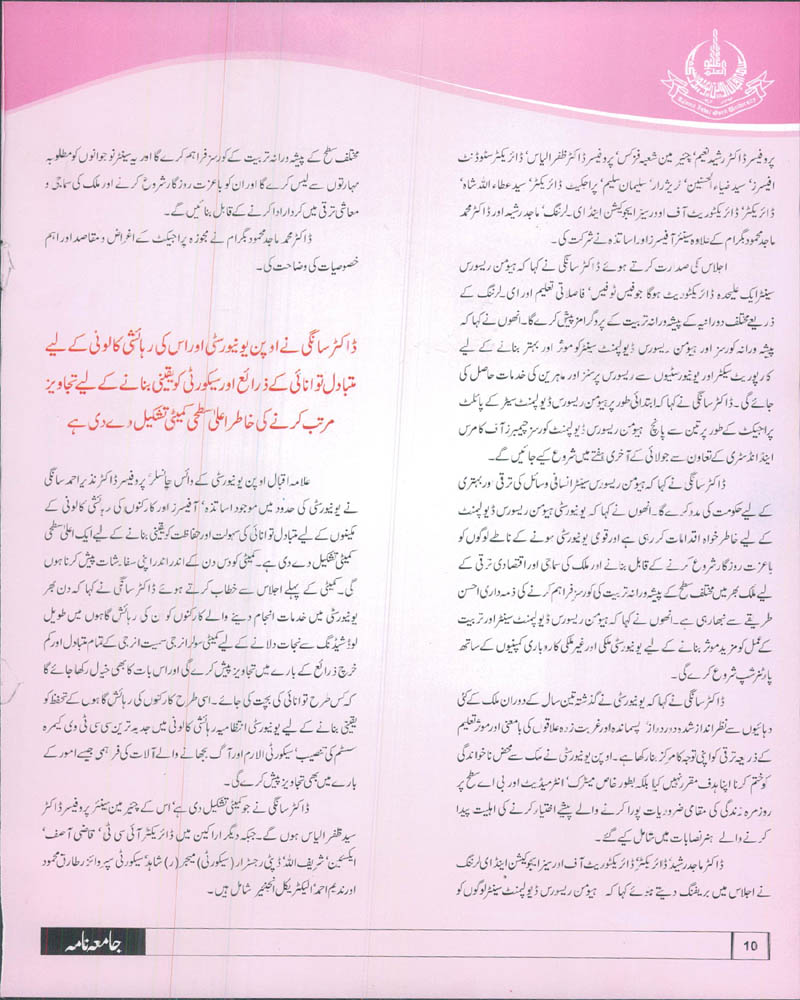 Allama Iqbal Open University
پروفیسر ڈاکٹر رشید نعیم، چیئر مین شعبہ فزکس، پروفیسر ڈاکٹر ظفر الیاس، ڈائریکٹر سٹوڈنٹ
افیسرز، سید ضیاء الحسنین، ٹریژرار، سلیمان سلیم، پراجیکٹ ڈائریکٹر، سید عطاء اللہ شاہ،
ڈائریکٹر، ڈائریکٹوریٹ آف اوورسیز ایجوکیشن اینڈ ای۔لرننگ، ماجد رشید اور ڈاکٹر محمد
ماجد محمود بگرام کے علاوہ سینئر آفیسرز اور اساتذہ نے شرکت کی۔
اجلاس کی صدارت کرتے ہوئے ڈاکٹر سانگی نے کہا کہ ہیومن ریسورس
سینٹر ایک علیحدہ ڈائریکٹوریٹ ہوگا جو فیس ٹو فیس، فاصلاتی تعلیم اور ای۔لرننگ کے
ذریعے مختلف دورانیہ کے پیشہ ورانہ تربیت کے پروگرامز پیش کرے گا۔ انھوں نے کہا کہ
پیشہ ورانہ کورسز اور ہیومن ریسورس ڈیولپمنٹ سینٹر کو موثر اور بہتر بنانے کے لیے
کارپوریٹ سیکٹر اور یونیورسٹیوں سے ریسورس پرسنز اور ماہرین کی خدمات حاصل کی
جائے گی۔ ڈاکٹر سانگی نے کہا کہ ابتدائی طور پر ہیومن ریسورس ڈیولپمنٹ سیٹر کے پائلٹ
پراجیکٹ کے طور پر تین سے پانچ ہیومن ریسورس ڈیولپمنٹ کورسز چیمبرز آف کامرس
اینڈ انڈسٹری کے تعاون سے جولائی کے آخری ہفتے میں شروع کیے جائیں گے۔
ڈاکٹر سانگی نے کہا کہ ہیومن ریسورس سینٹر انسانی وسائل کی ترقی اور بہتری
کے لیے حکومت کی مدد کرے گا۔ انھوں نے کہا کہ یونیورسٹی ہیومن ریسورس ڈیولپمنٹ
کے لیے خاطر خواہ اقدامات کر رہی ہے اور قومی یونیورسٹی ہونے کے ناطے لوگوں کو
باعزت روزگار شروع کرنے کے قابل بنانے اور ملک کی سماجی اور اقتصادی ترقی کے
لیے ملک بھر میں مختلف سطح کے پیشہ ورانہ تربیت کی کورسز فراہم کرنے کی ذمہ داری احسن
طریقے سے نبھا رہی ہے۔ انھوں نے کہا کہ ہیومن ریسورس ڈیولپمنٹ سینٹر اور تربیت
کے عمل کو مزید موثر بنانے کے لیے یونیورسٹی ملکی اور غیر ملکی کاروباری کمپنیوں کے ساتھ
پارٹنرشپ شروع کرے گی۔
ڈاکٹر سانگی نے کہا کہ یونیورسٹی نے گذشتہ تین سال کے دوران ملک کے کئی
دہائیوں سے نظر انداز شدہ دور دراز، پسماندہ اور غربت زدہ علاقوں کی بامعنی اور موثر تعلیم
کے ذریعہ ترقی کو اپنی توجہ کا مرکز بنا رکھا ہے۔ اوپن یونیورسٹی نے ملک سے محض ناخواندگی
کو ختم کرنا اپنا ہدف مقرر نہیں کیا بلکہ بطور خاص میٹرک، انٹرمیڈیٹ اور بی اے سطح پر
روزمرہ زندگی کی مقامی ضروریات پورا کرنے والے پیشے اختیار کرنے کی اہلیت پیدا
کرنے والے ہنر نصابات میں شامل کیے گئے۔
ڈاکٹر ماجد رشید، ڈائریکٹر، ڈائریکٹوریٹ آف اوورسیز ایجوکیشن اینڈ ای لرننگ
نے اجلاس میں بریفنگ دیتے ہوئے کہا کہ ہیومن ریسورس ڈیولپمنٹ سینٹر لوگوں کو
مختلف سطح کے پیشہ ورانہ تربیت کے کورسز فراہم کرے گا اور یہ سینٹر نوجوانوں کو مطلوبہ
مہارتوں سے لیس کرے گا اور ان کو باعزت روزگار شروع کرنے اور ملک کی سماجی و
معاشی ترقی میں کردار ادا کرنے کے قابل بنائیں گے۔
ڈاکٹر محمد ماجد محمود بگرام نے مجوزہ پراجیکٹ کے اغراض و مقاصد اور اہم
خصوصیات کی وضاحت کی۔
ڈاکٹر سانگی نے اوپن یونیورسٹی اور اس کی رہائشی کالونی کے لیے
متبادل توانائی کے ذرائع اور سیکورٹی کو یقینی بنانے کے لیے تجاویز
مرتب کرنے کی خاطر اعلیٰ سطحی کمیٹی تشکیل دے دی ہے
علامہ اقبال اوپن یونیورسٹی کے وائس چانسلر، پروفیسر ڈاکٹر نذیر احمد سانگی
نے یونیورسٹی کی حدود میں موجود اساتذہ، آفیسرز اور کارکنوں کی رہائشی کالونی کے
مکینوں کے لیے متبادل توانائی کی سہولت اور حفاظت کو یقینی بنانے کے لیے ایک اعلیٰ سطحی
کمیٹی تشکیل دے دی ہے۔ کمیٹی کو دس دن کے اندر اندر اپنی سفارشات پیش کرنا ہوں
گی۔ کمیٹی کے پہلے اجلاس سے خطاب کرتے ہوئے ڈاکٹر سانگی نے کہا کہ دن بھر
یونیورسٹی میں خدمات انجام دینے والے کارکنوں کو ان کی رہائش گاہوں میں طویل
لوڈ شیڈنگ سے نجات دلانے کے لیے کمیٹی سولر انرجی سمیت انرجی کے تمام متبادل اور کم
خرچ ذرائع کے بارے میں تجاویز پیش کرے گی اور اس بات کا بھی خیال رکھا جائے گا
کہ کس طرح توانائی کی بچت کی جائے۔ اسی طرح کارکنوں کی رہائش گاہوں کے تحفظ کو
یقینی بنانے کے لیے یونیورسٹی انتظامیہ رہائشی کالونی میں جدید ترین سی سی ٹی وی کیمرہ
سسٹم کی تنصیب، سیکورٹی الارم اور آگ بجھانے والے آلات کی فراہمی جیسے امور کے
بارے میں بھی تجاویز پیش کرے گی۔
ڈاکٹر سانگی نے جو کمیٹی تشکیل دی ہے، اس کے چیئر مین سینئر پروفیسر ڈاکٹر
سید ظفر الیاس ہوں گے۔ جبکہ دیگر اراکین میں ڈائریکٹر آئی سی ٹی، قاضی آصف،
ایکسئین، شریف اللہ، ڈپٹی رجسٹرار (سیکورٹی) میجر (ر) شاہد، سیکورٹی سپروائزر طارق محمود
اور ندیم احمد، الیکٹریکل انجنئیر شامل ہیں۔
جامعہ نامہ
10